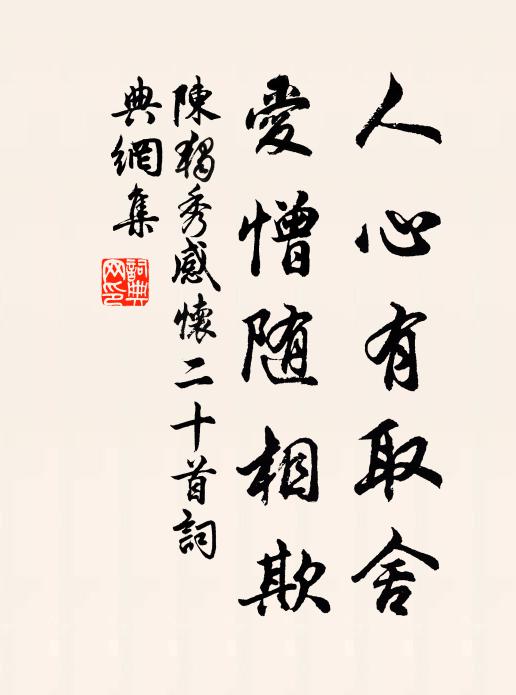 人心有取舍
愛憎随相欺
陳独秀感懷二十首詞
典網集
詞典
网印